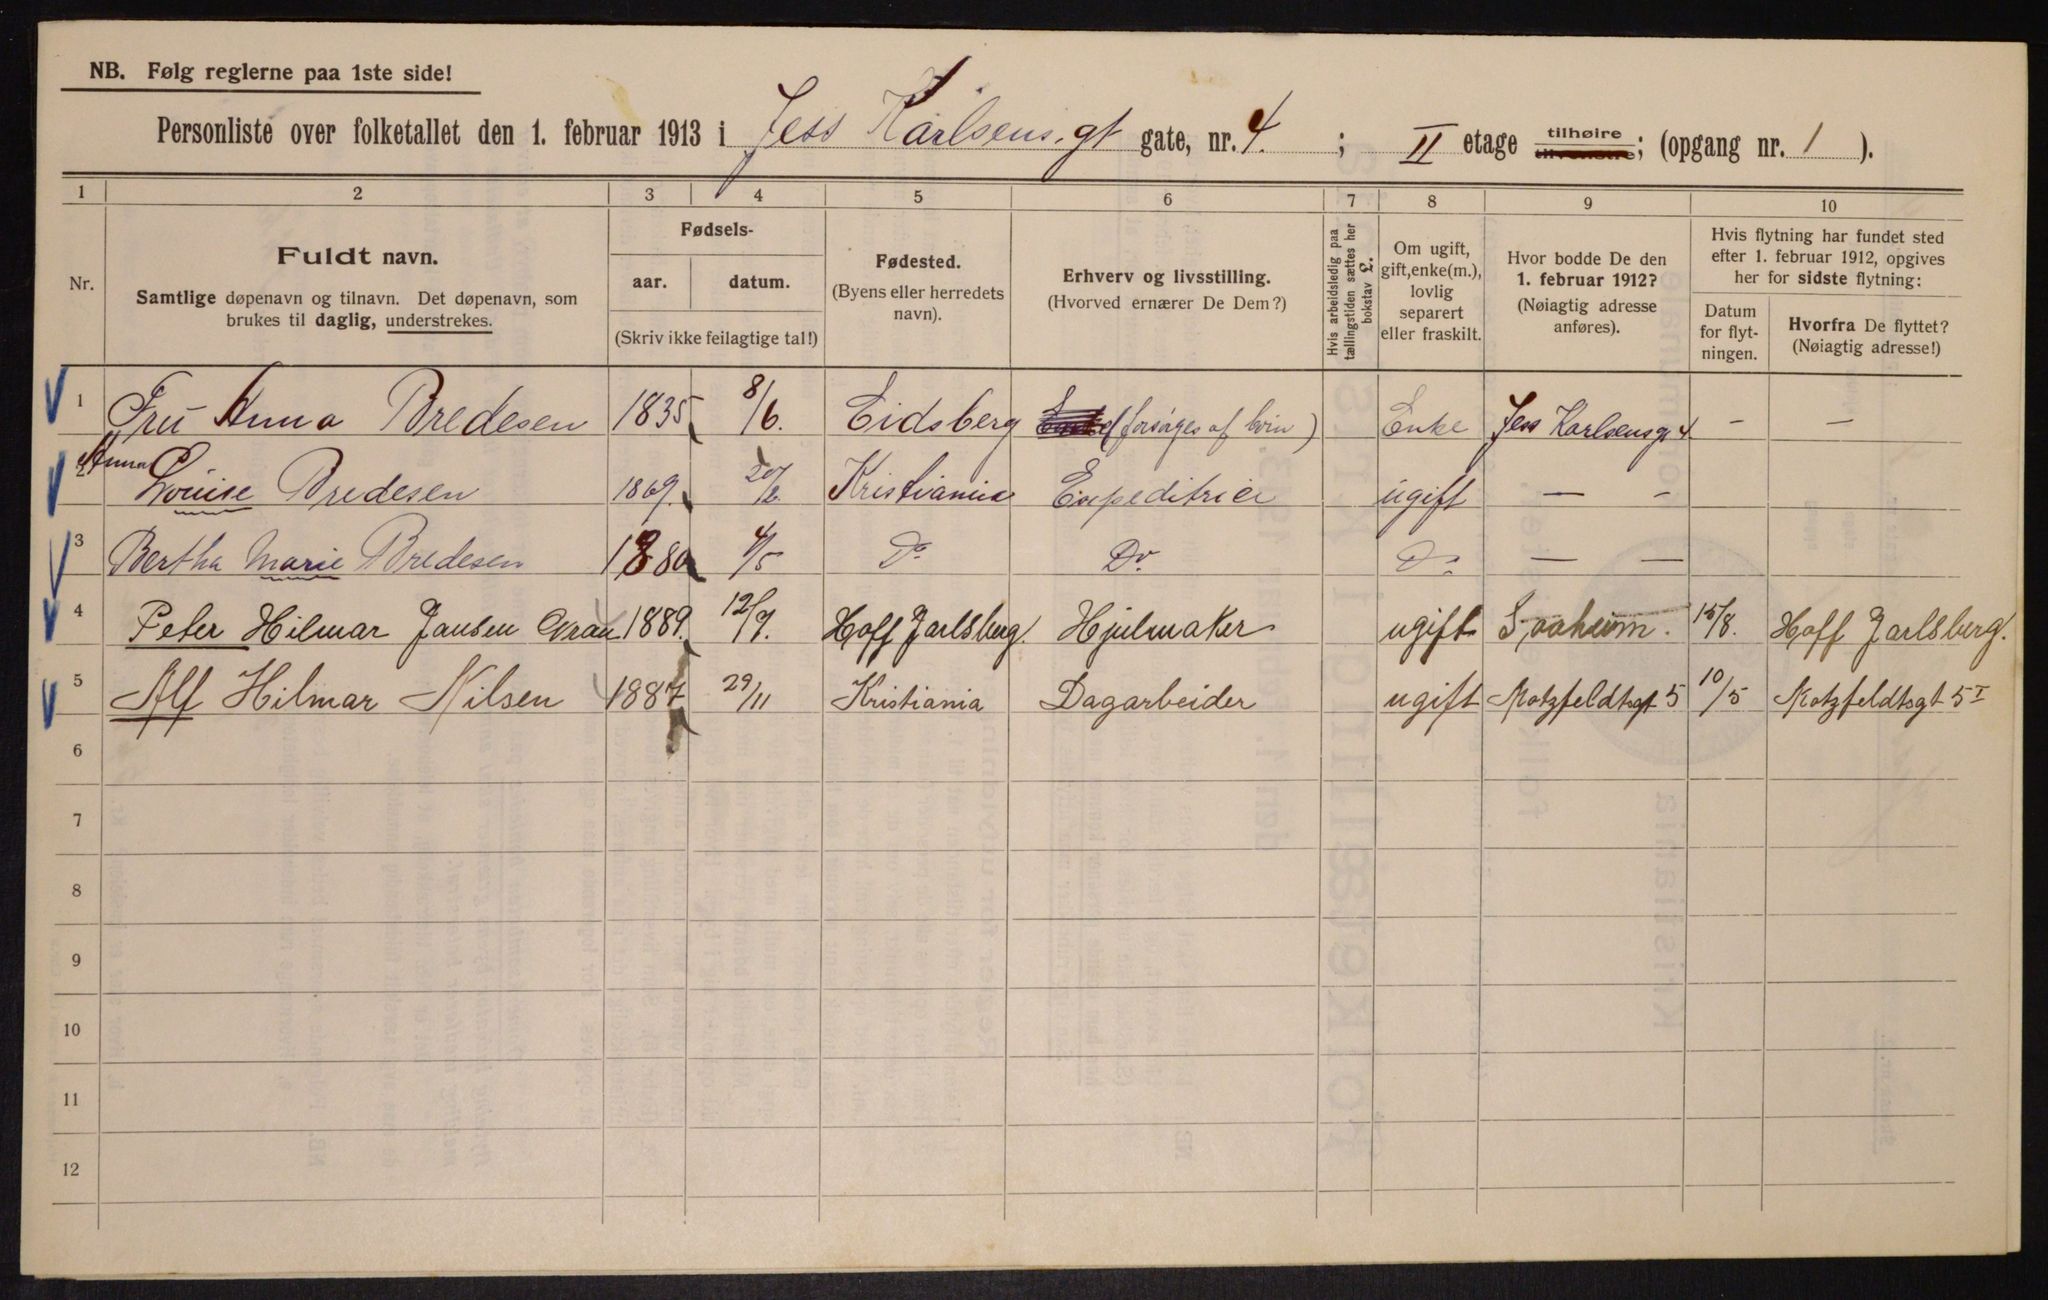 NB. Følg reglerne paa 1ste side!
Personliste over folketallet den 1. februar 1913 i Jess Karlsens. gt gate, nr. 4. ; II etage tilhøire tilvenstre; (opgang nr. 1 ).
1 2 3 4 5 6 7 8 9 10
Nr.
Fuldt navn.
Samtlige døpenavn og tilnavn. Det døpenavn, som
brukes til daglig, understrekes.
Fødsels-
aar. datum.
(Skriv ikke feilagtige tal!)
Fødested.
(Byens eller herredets
navn).
Erhverv og livsstilling.
(Hvorved ernærer De Dem?)
Hvis arbeidsledig paa
tællingstiden sættes her
bokstav L.
Om ugift,
gift, enke(m.),
lovlig
separert
eller fraskilt.
Hvor bodde De den
1. februar 1912?
(Nøiagtig adresse
anføres).
Hvis flytning har fundet sted
efter 1. februar 1912, opgives
her for sidste flytning:
Datum
for flyt-
ningen.
Hvorfra De flyttet?
(Nøiagtig adresse!)
1 Fru Anna Bredesen 1835 8/6. Eidsberg (forsørges af børn) Enke Jess Karlsensg 4 — —
2 Anna Louise Bredesen 1869. Kristiania Expeditrice ugift — -
3 Bertha Marie Bredesen 1880 4/5 Do Do Do — —
4 Peter Hilmar Jansen Grau 1889. 12/9. Hoff Jarlsberg Hjulmaker ugift 15/8. Hoff Jarlsberg.
5 Alf Hilmar Nilsen 1887 29/11 Kristiania Dagarbeider ugift Motzfeldtsgt 5 10/5 Motzfeldtsgt 5 I
6
7
8
9
10
11
12